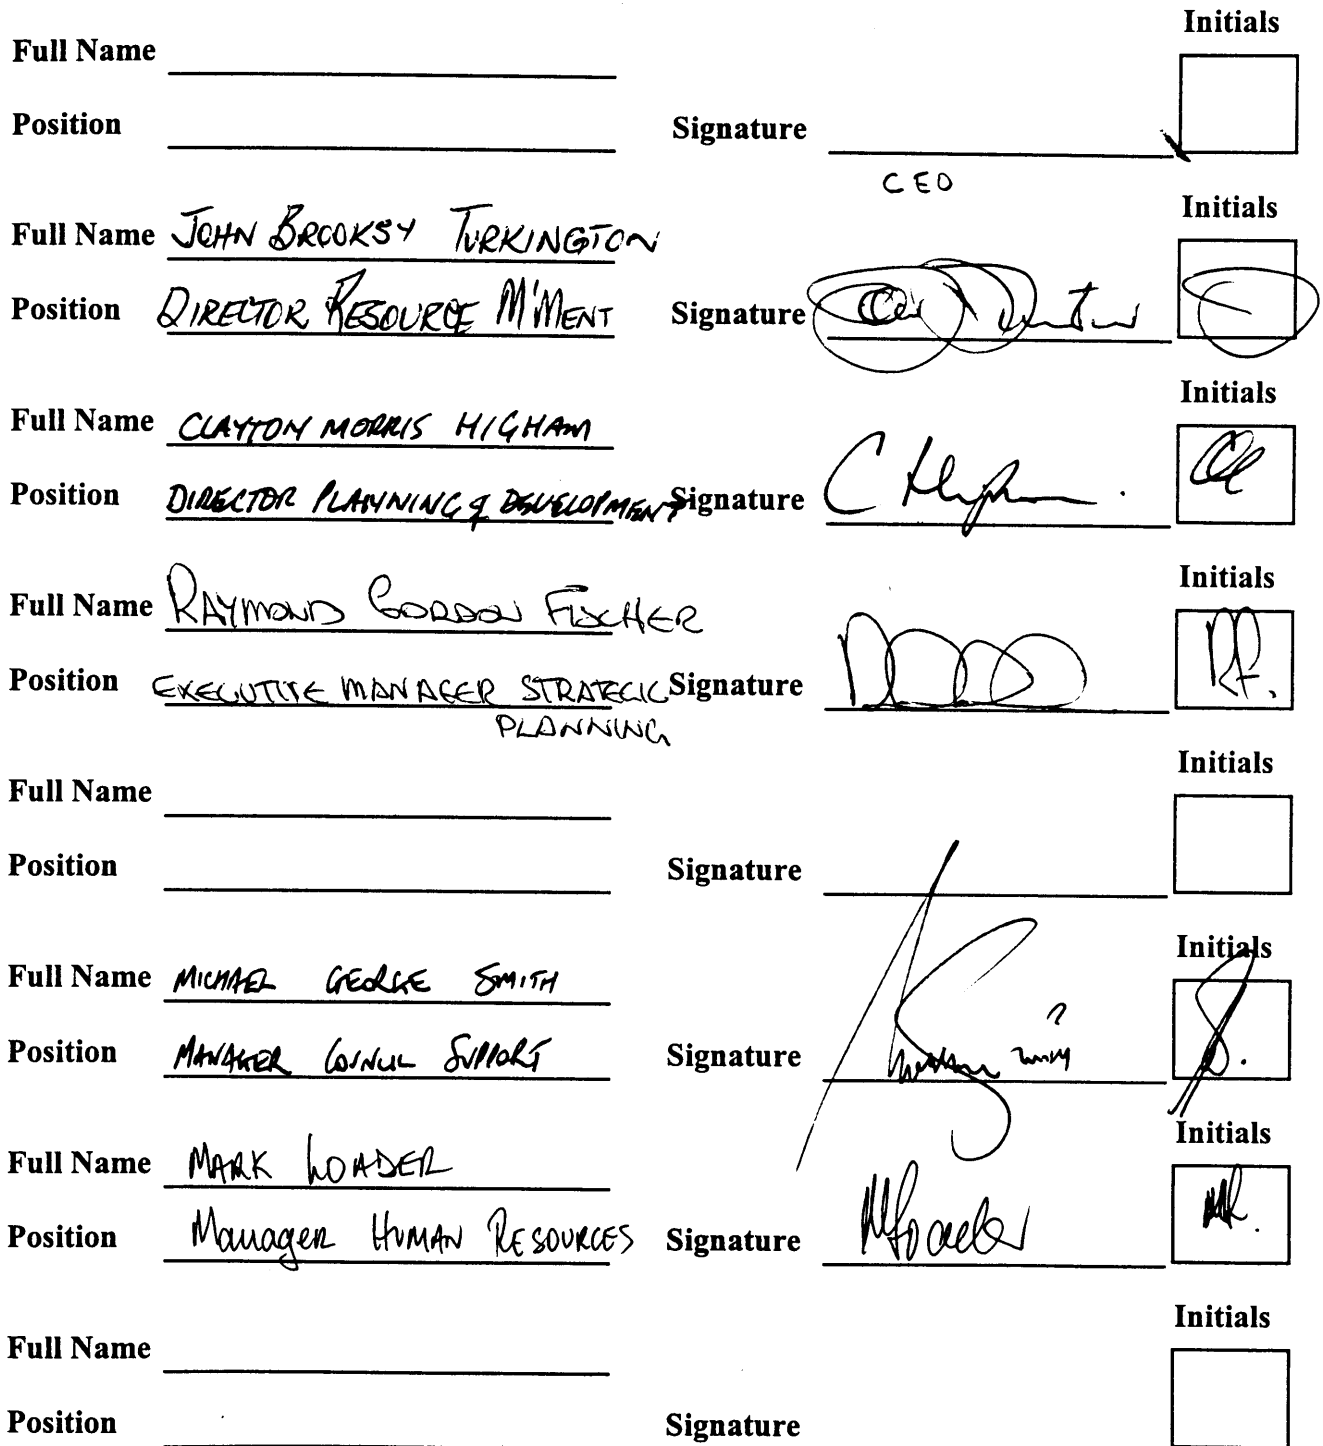 Initials
Full Name
Position Signature
CEO
Initials
Full Name JOHN BROOKSY TURKINGTON
Position DIRECTOR RESOURCE M'MENT Signature
Initials
Full Name CLAYTON MORRIS HIGHAM
Position DIRECTOR PLANNING & DEVELOPMENT Signature C Higham
Initials
Full Name RAYMOND GORDON FISCHER
Position EXECUTIVE MANAGER STRATEGIC Signature RF.
PLANNING
Initials
Full Name
Position Signature
Initials
Full Name MICHAEL GEORGE SMITH
Position MANAGER COUNCIL SUPPORT Signature
Initials
Full Name MARK LOADER
Position Manager HUMAN RESOURCES Signature MLoader
Initials
Full Name
Position Signature